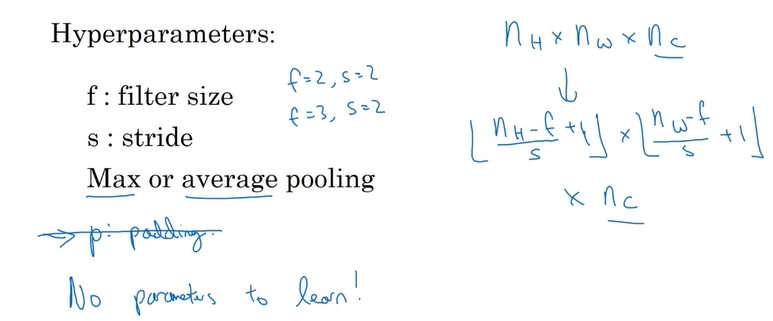 Hyperparameters:
f : filter size
s : stride
Max or average pooling
→ p: padding.
No parameters to learn!
f=2, s=2
f=3, s=2
n_H × n_W × n_C
↓
⌊(n_H - f)/s + 1⌋ × ⌊(n_W - f)/s + 1⌋
× n_C